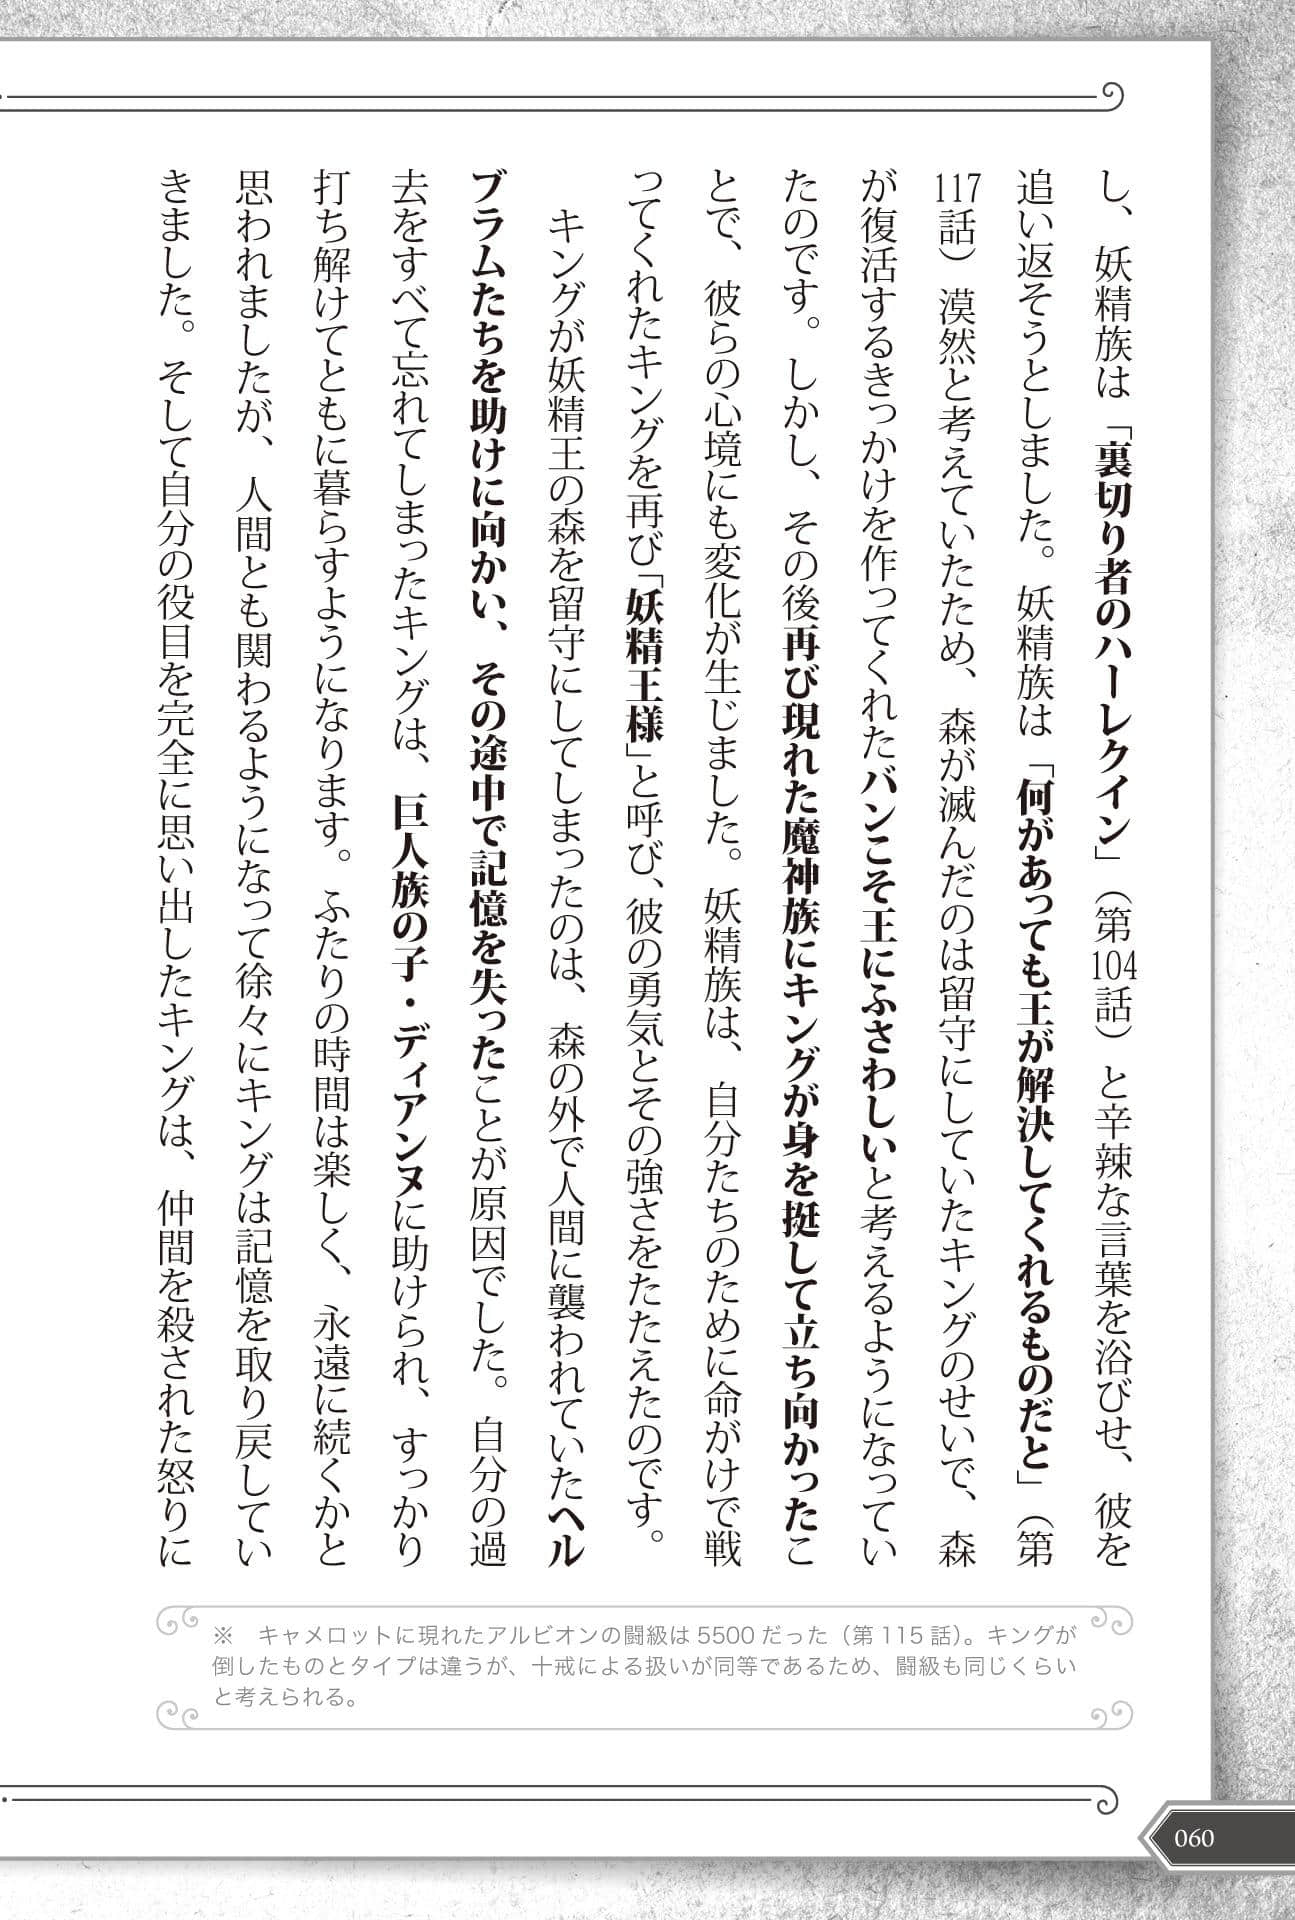 し、妖精族は「裏切り者のハーレクイン」（第104話）と辛辣な言葉を浴びせ、彼を
追い返そうとしました。妖精族は「何があっても王が解決してくれるものだと」（第
117話）漠然と考えていたため、森が滅んだのは留守にしていたキングのせいで、森
が復活するきっかけを作ってくれたバンこそ王にふさわしいと考えるようになってい
たのです。しかし、その後再び現れた魔神族にキングが身を挺して立ち向かったこ
とで、彼らの心境にも変化が生じました。妖精族は、自分たちのために命がけで戦
ってくれたキングを再び「妖精王様」と呼び、彼の勇気とその強さをたたえたのです。
キングが妖精王の森を留守にしてしまったのは、森の外で人間に襲われていたヘル
ブラムたちを助けに向かい、その途中で記憶を失ったことが原因でした。自分の過
去をすべて忘れてしまったキングは、巨人族の子・ディアンヌに助けられ、すっかり
打ち解けてともに暮らすようになります。ふたりの時間は楽しく、永遠に続くかと
思われましたが、人間とも関わるようになって徐々にキングは記憶を取り戻してい
きました。そして自分の役目を完全に思い出したキングは、仲間を殺された怒りに
※　キャメロットに現れたアルビオンの闘級は5500だった（第115話）。キングが
倒したものとタイプは違うが、十戒による扱いが同等であるため、闘級も同じくらい
と考えられる。
060